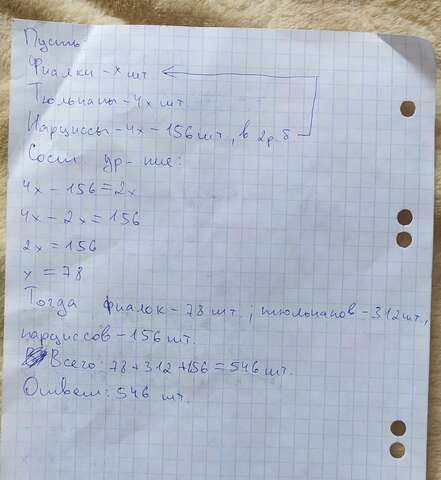 Пусть:
Фиалки - х шт
Тюльпаны - 4х шт.
Нарциссы - 4х - 156 шт, в 2р. б
Сост ур-ние:
4х - 156 = 2х
4х - 2х = 156
2х = 156
х = 78
Тогда фиалок - 78 шт.; тюльпанов - 312 шт.,
нарциссов - 156 шт.
Всего: 78 + 312 + 156 = 546 шт.
Ответ: 546 шт.